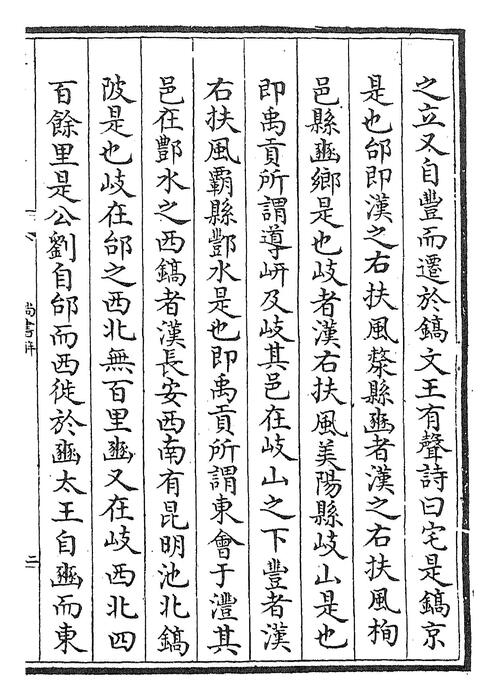 之立又自豐而遷於鎬文王有聲詩曰宅是鎬京
是也邰即漢之右扶風斄縣豳者漢之右扶風栒
邑縣豳鄉是也岐者漢右扶風美陽縣岐山是也
即禹貢所謂導岍及岐其邑在岐山之下豐者漢
右扶風霸縣酆水是也即禹貢所謂東會于灃其
邑在酆水之西鎬者漢長安西南有昆明池北鎬
陂是也岐在邰之西北無百里豳又在岐西北四
百餘里是公劉自邰而西徙於豳太王自豳而東
尚書解
二